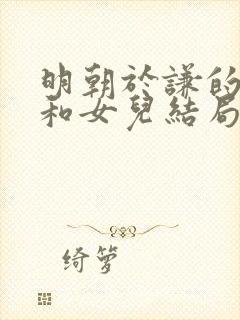 明朝於謙的
和女兒結局
绮箩